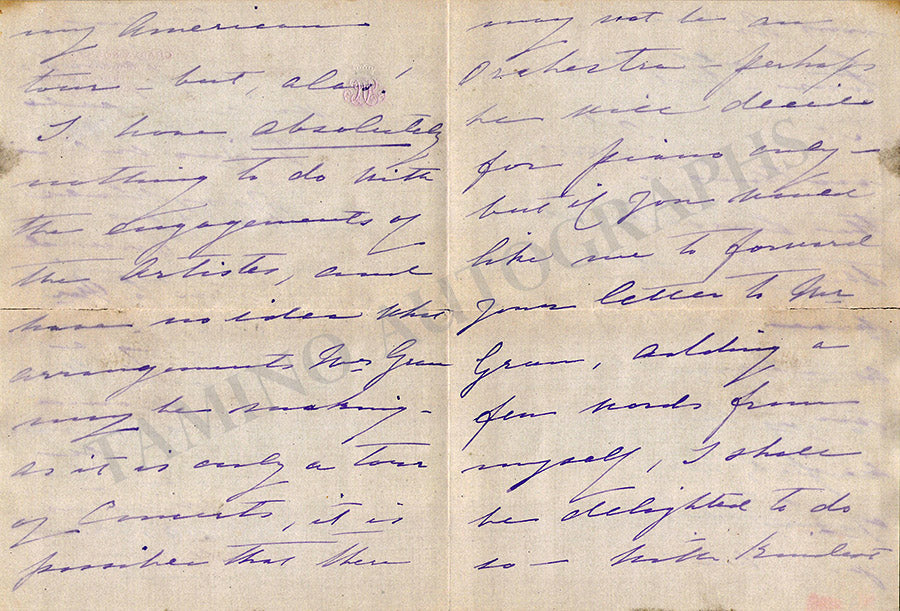 my American
tour – but, alas!
I have absolutely
nothing to do with
the engagements of
the Artistes, and
have no idea what
arrangements Mr Grau
may be making –
as it is only a tour
of Concerts, it is
possible that there
may not be an
Orchestra – perhaps
he will decide
for piano only –
but if you would
like me to forward
your letter to Mr
Grau, adding a
few words from
myself, I shall
be delighted to do
so – with kindest
TAMINO AUTOGRAPHS